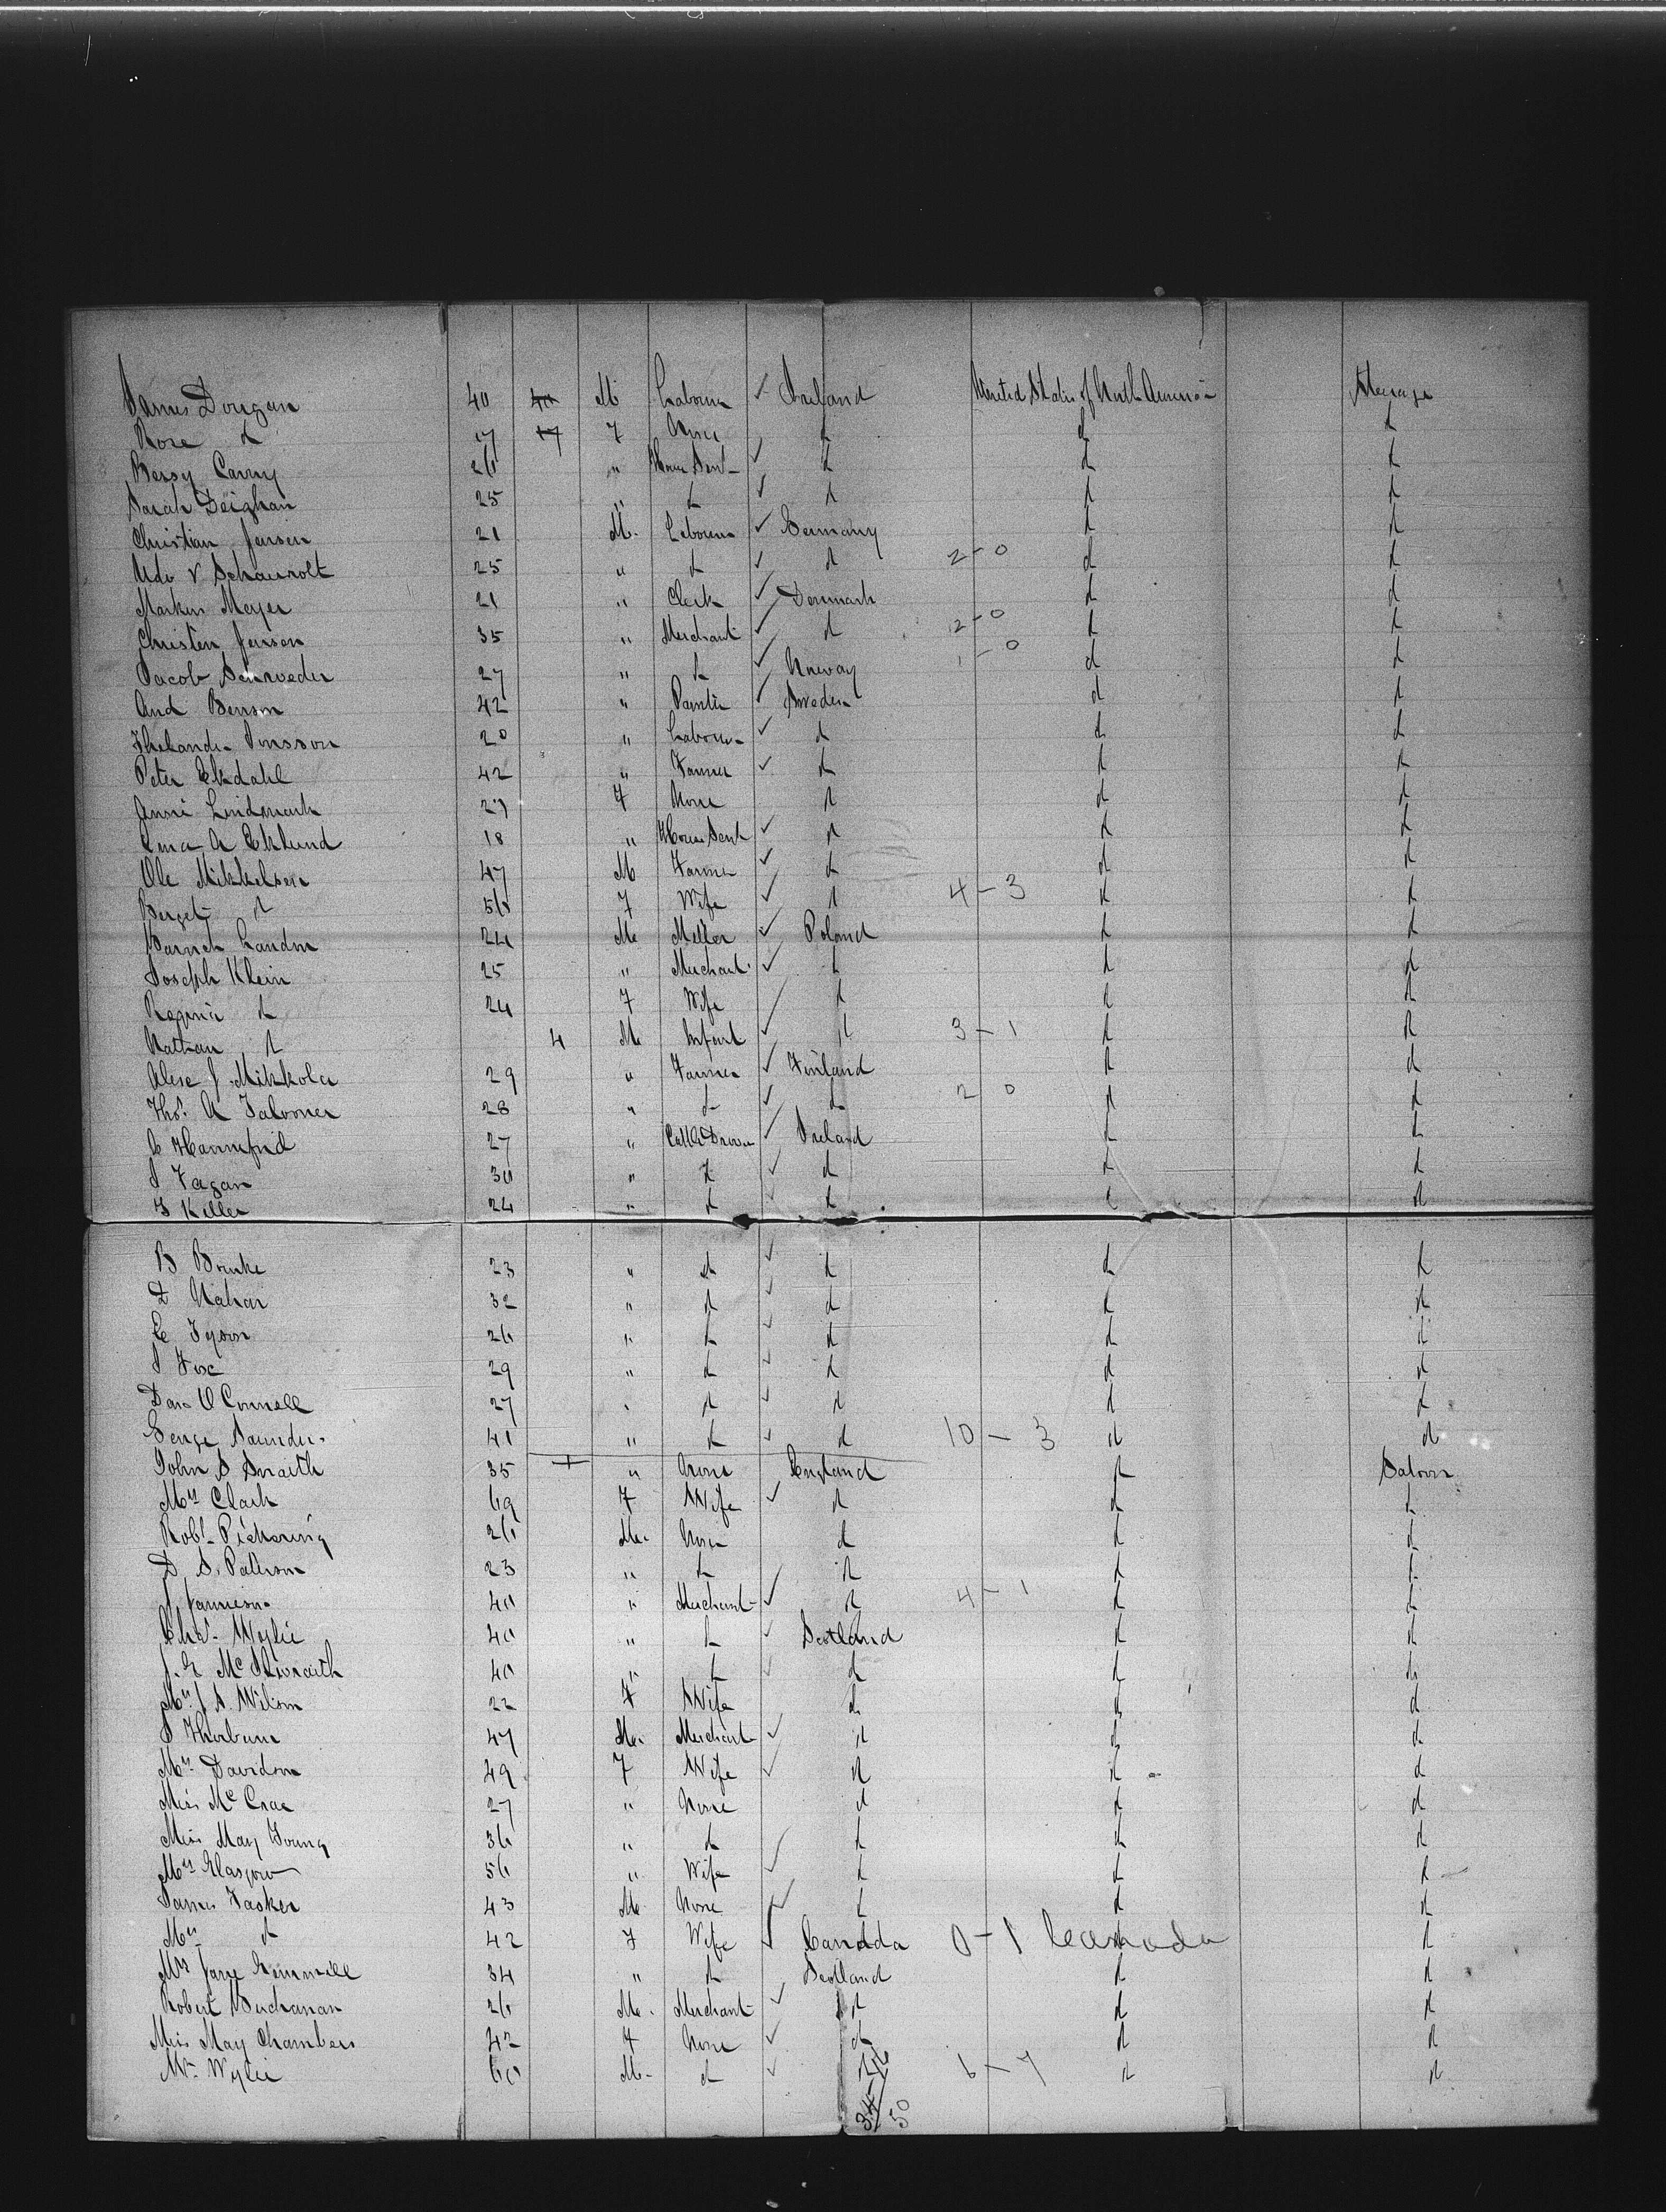 James Dougan 40 40 M Labourer ✓ Ireland United States of North America Steerage
Rose d 17 17 F None d d d
Bessy Carry 20 " House Servt ✓ d d d
Sarah Deighan 25 " d ✓ d d d
Christian Jensen 21 M. Labourer ✓ Germany d d
Udo v Schauroth 25 " d ✓ d 2-0 d d
Markus Meyer 21 " Clerk ✓ Denmark d d
Christen Jensen 35 " Merchant ✓ d 2-0 d d
Jacob Schroeder 27 " d ✓ Norway 1-0 d d
And Benson 42 " Painter ✓ Sweden d d
Jonsson 20 " Labourer ✓ d d d
Peter Ekdahl 42 " Farmer ✓ d d d
Anni Lindmark 27 F None d d d
Ema A Eklund 18 " House Servt ✓ d d d
Ole Mikkelsen 47 M Farmer ✓ d d d
Berget d 50 F Wife ✓ d 4-3 d d
Baruch Landm 24 M Miller ✓ Poland d d
Joseph Klein 25 " Merchant ✓ d d d
Regina d 24 F Wife ✓ d d d
Nathan d 4 M Infant ✓ d 3-1 d d
J. Mikkola 29 " Farmer ✓ Finland d d
Thos. A Falconer 28 " d ✓ d 2 0 d d
C Hannifrid 27 " Cattle Drover ✓ Ireland d d
J Fagan 30 " d ✓ d d d
J Killer 24 " d ✓ d d d
B Bourke 23 " d ✓ d d d
D Nahar 32 " d ✓ d d d
C Tyson 20 " d ✓ d d d
J Fox 29 " d ✓ d d d
Dan O Connell 27 " d ✓ d d d
George Saunders 40 " d ✓ d 10-3 d d
John S Snaith 35 " None England d Saloon
Mrs Clark 69 F Wife ✓ d d d
Robt. Pickering 20 M. None d d d
D. S. Patterson 23 " d d d d
J Jamieson 40 " Merchant ✓ d 4-1 d d
Chas. Wylie 40 " d ✓ Scotland d d
J. G McIlwraith 40 " d ✓ d d d
Mrs J A. Wilson 22 F Wife d d d
J Thorburn 47 M. Merchant ✓ d d d
Mrs Davidson 49 F Wife ✓ d d d
Miss McCrae 27 " None d d d
Miss May Young 30 " d ✓ d d d
Mrs Glasgow 50 " Wife ✓ d d d
James Tasker 43 M None ✓ d d d
Mrs d 42 F Wife ✓ Canada 0-1 Canada d d
Mrs Jane Gemmell 34 " d Scotland d d
Robert Buchanan 20 M. Merchant ✓ d d d
Miss May Chambers 42 F None ✓ d d d
Mr. Wylie 60 M. d ✓ d 6-7 d d
50